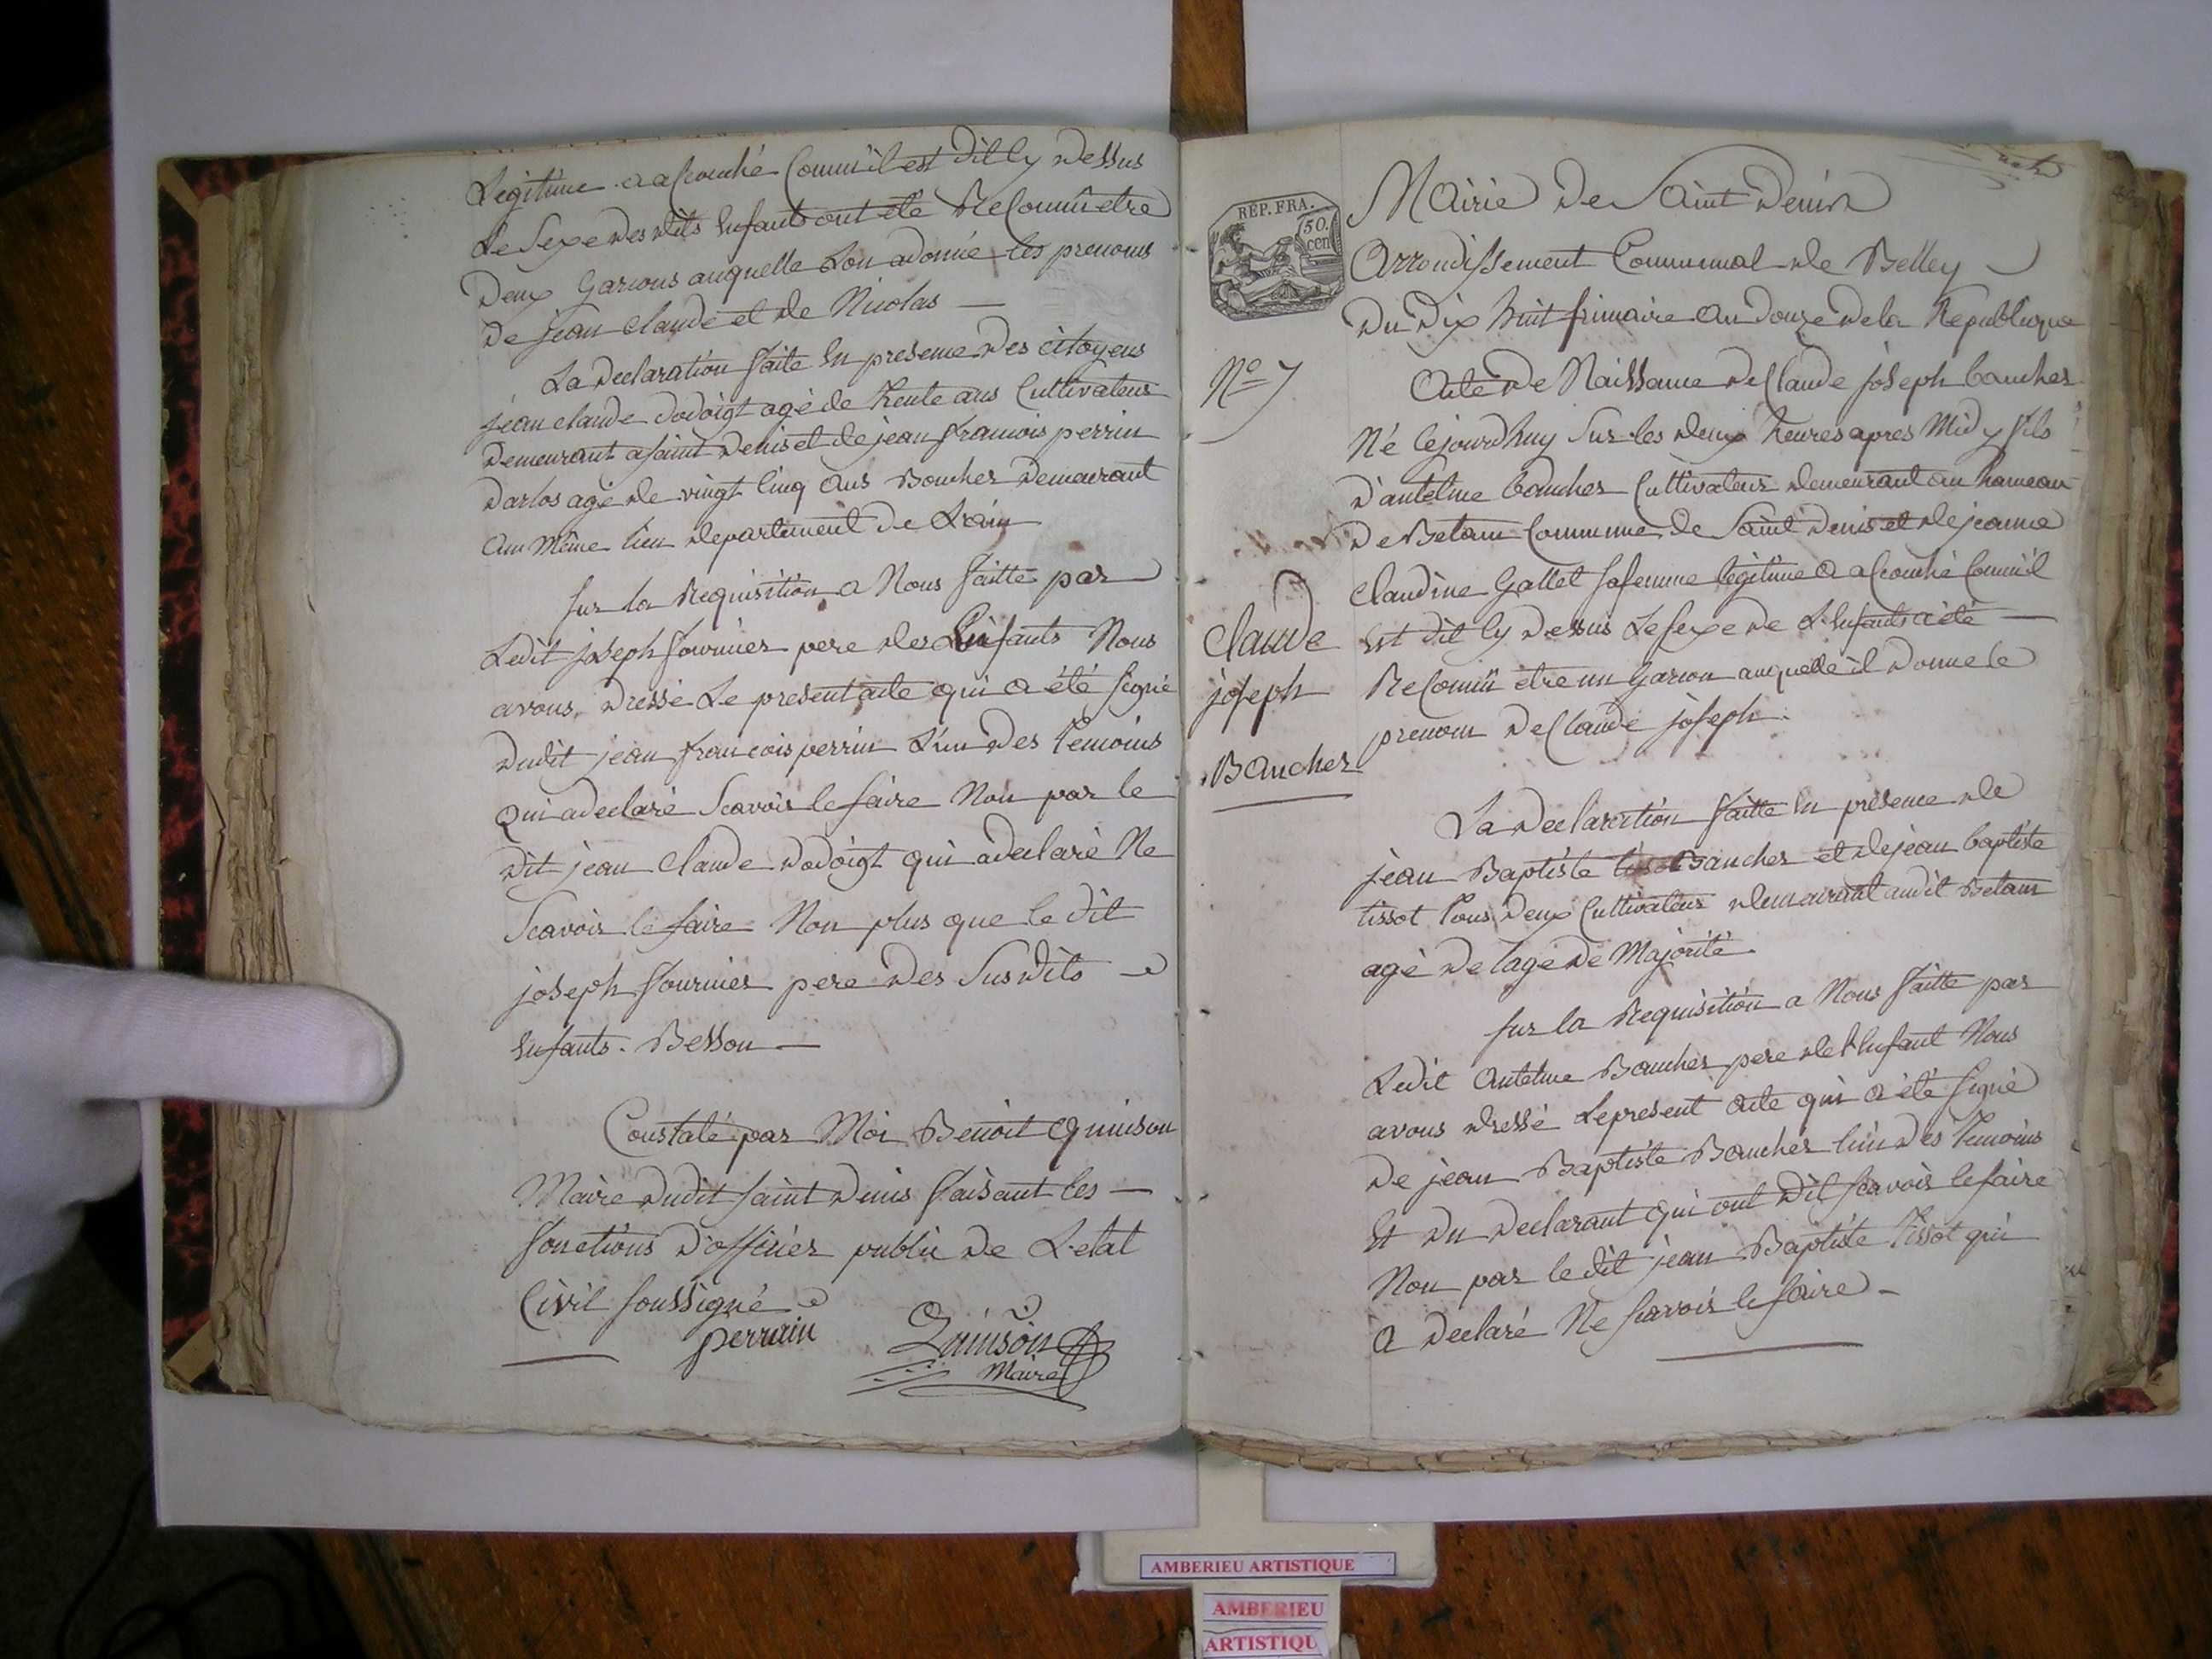 Legitime a acouché Comm'il est dit cy dessus
Le sexe des dits Enfants ont été Reconnû etre
Deux Garcons auquelle Lon a donné les prenoms
de jean claude et de Nicolas —
La declaration faite En presence des citoyens
jean claude dodoigt agé de trente ans Cultivateur
demeurant a saint denis et de jean francois perrin
darlos agé de vingt cinq ans Boucher demeurant
au Même lieu departement de Lain
sur la Requisition a Nous faitte par
Ledit joseph fournier pere des Enfants Nous
avons dressé Le present acte qui a été signé
dudit jean francois perrin L'un des temoins
Qui a declaré Scavoir le faire Non par le
dit jean Claude dodoigt qui a declaré Ne
Scavoir le faire Non plus que le dit
joseph fournier pere des Susdits
Enfants. Besson —
Constaté par Moi Benoit Quinson
Maire dudit saint denis faisant les —
fonctions d'officier public de L'etat
Civil soussigné
perrain
Quinson
Maire
REP. FRA.
50.
cen
Mairie de Saint Denis
Arrondissement Communal de Belley
du dix huit frimaire an douze de la Republique
N° 7
Acte de Naissance de Claude joseph baucher
Né le jourdhuy Sur les deux heures apres Midy fils
d'antelme baucher Cultivateur demeurant au hameau
de Betam Commune de Saint denis et de jeanne
Claudine Gallet sa femme legitime a acouché Comm'il
Est dit cy dessus Le sexe de L'Enfants a été —
Reconnû etre un Garcon auquelle il donne le
prenom de Claude joseph.
Claude
joseph
Baucher
La declaration faitte En presence de
jean Baptiste Baucher et de jean baptiste
tissot tous deux Cultivateur demeurant audit Betam
agé de lage de Majorité
sur la Requisition a Nous faitte par
Ledit Antelme Baucher pere de l'Enfant Nous
avons dressé Le present acte qui a été signé
de jean Baptiste Baucher l'un des temoins
Et du declarant qui ont dit scavoir le faire
Non par le dit jean Baptiste Tissot qui
a declaré Ne scavoir le faire —
AMBERIEU ARTISTIQUE
AMBERIEU
ARTISTIQU